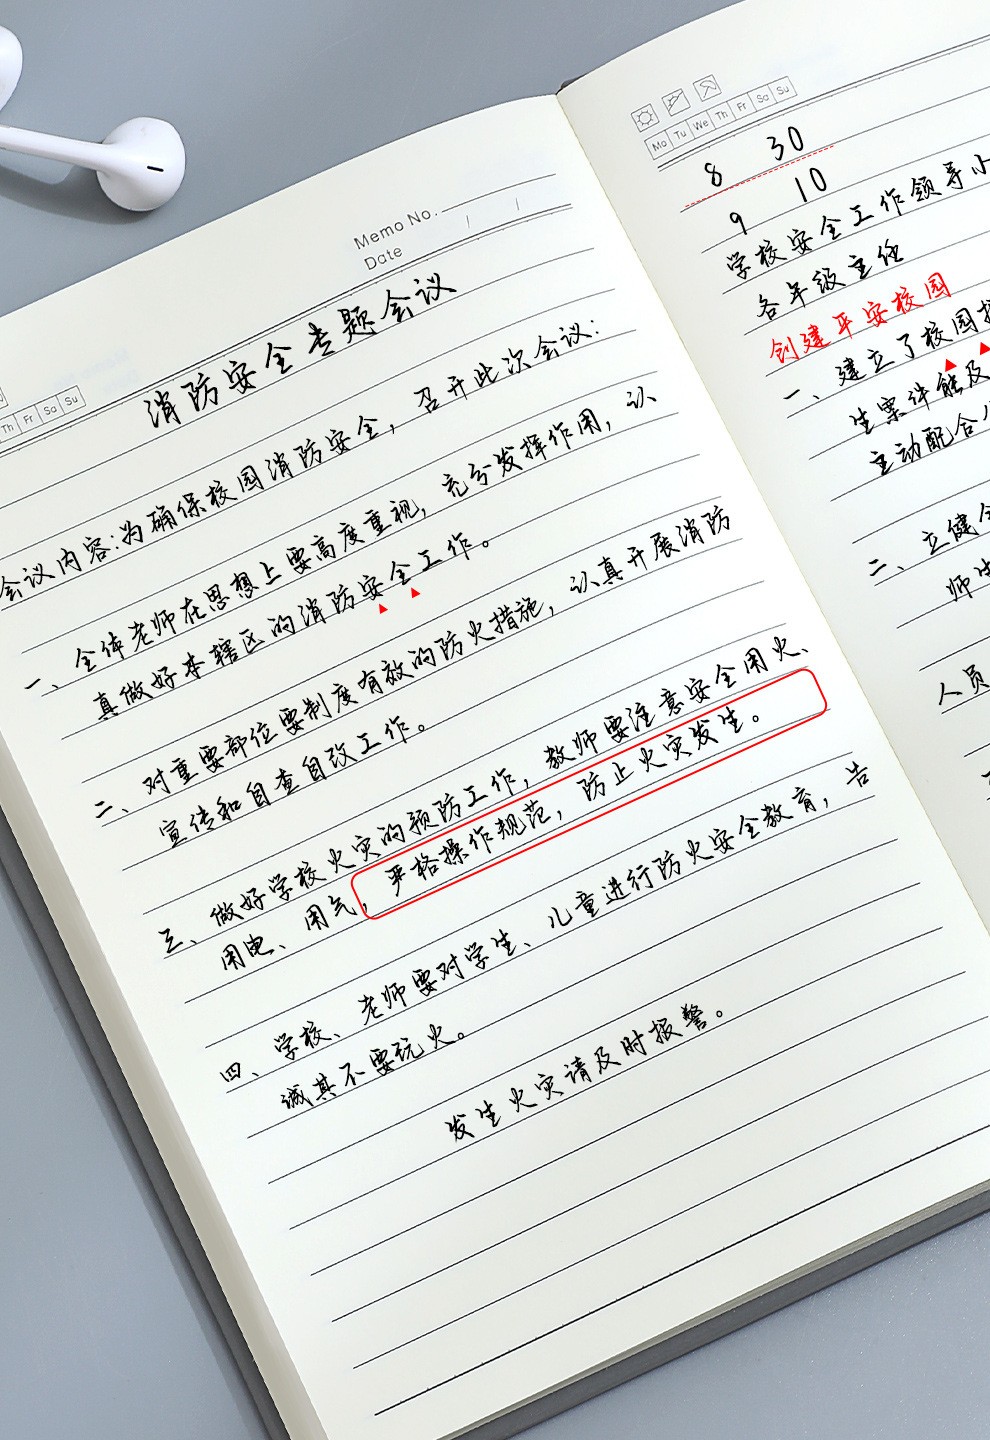 Th Fr Sa Su
Memo No.
Date / /
消防安全专题会议
会议内容:为确保校园消防安全，召开此次会议：
一、全体老师在思想上要高度重视，充分发挥作用，认
真做好本辖区的消防安全工作。
二、对重要部位要制度有效的防火措施，认真开展消防
宣传和自查自改工作。
三、做好学校火灾的预防工作，教师要注意安全用火、
用电、用气，严格操作规范，防止火灾发生。
四、学校、老师要对学生、儿童进行防火安全教育，告
诫其不要玩火。
发生火灾请及时报警。
Mo Tu We Th Fr Sa Su
8 30
9 10
学校安全工作领导小
各年级主任
创建平安校园
一、建立了校园
生案件能及
主动配合
二、立健全
师生
人员